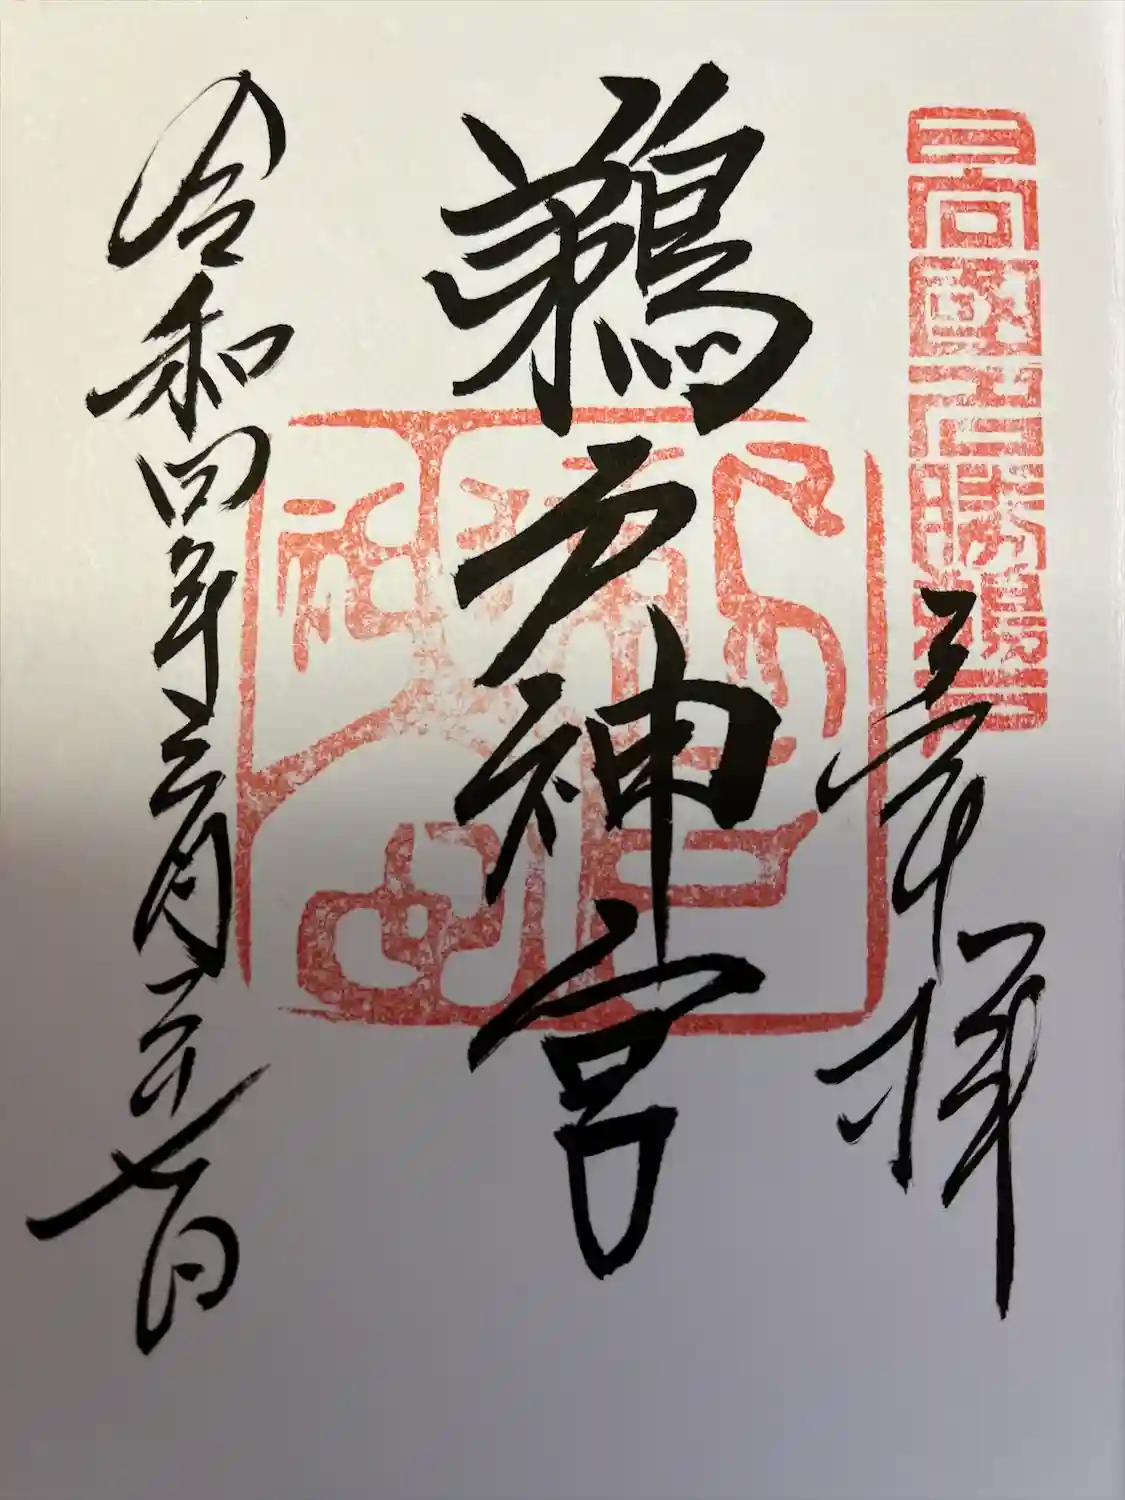 日向國名勝鵜戸
奉拝
鵜戸神宮
令和四年三月二十七日